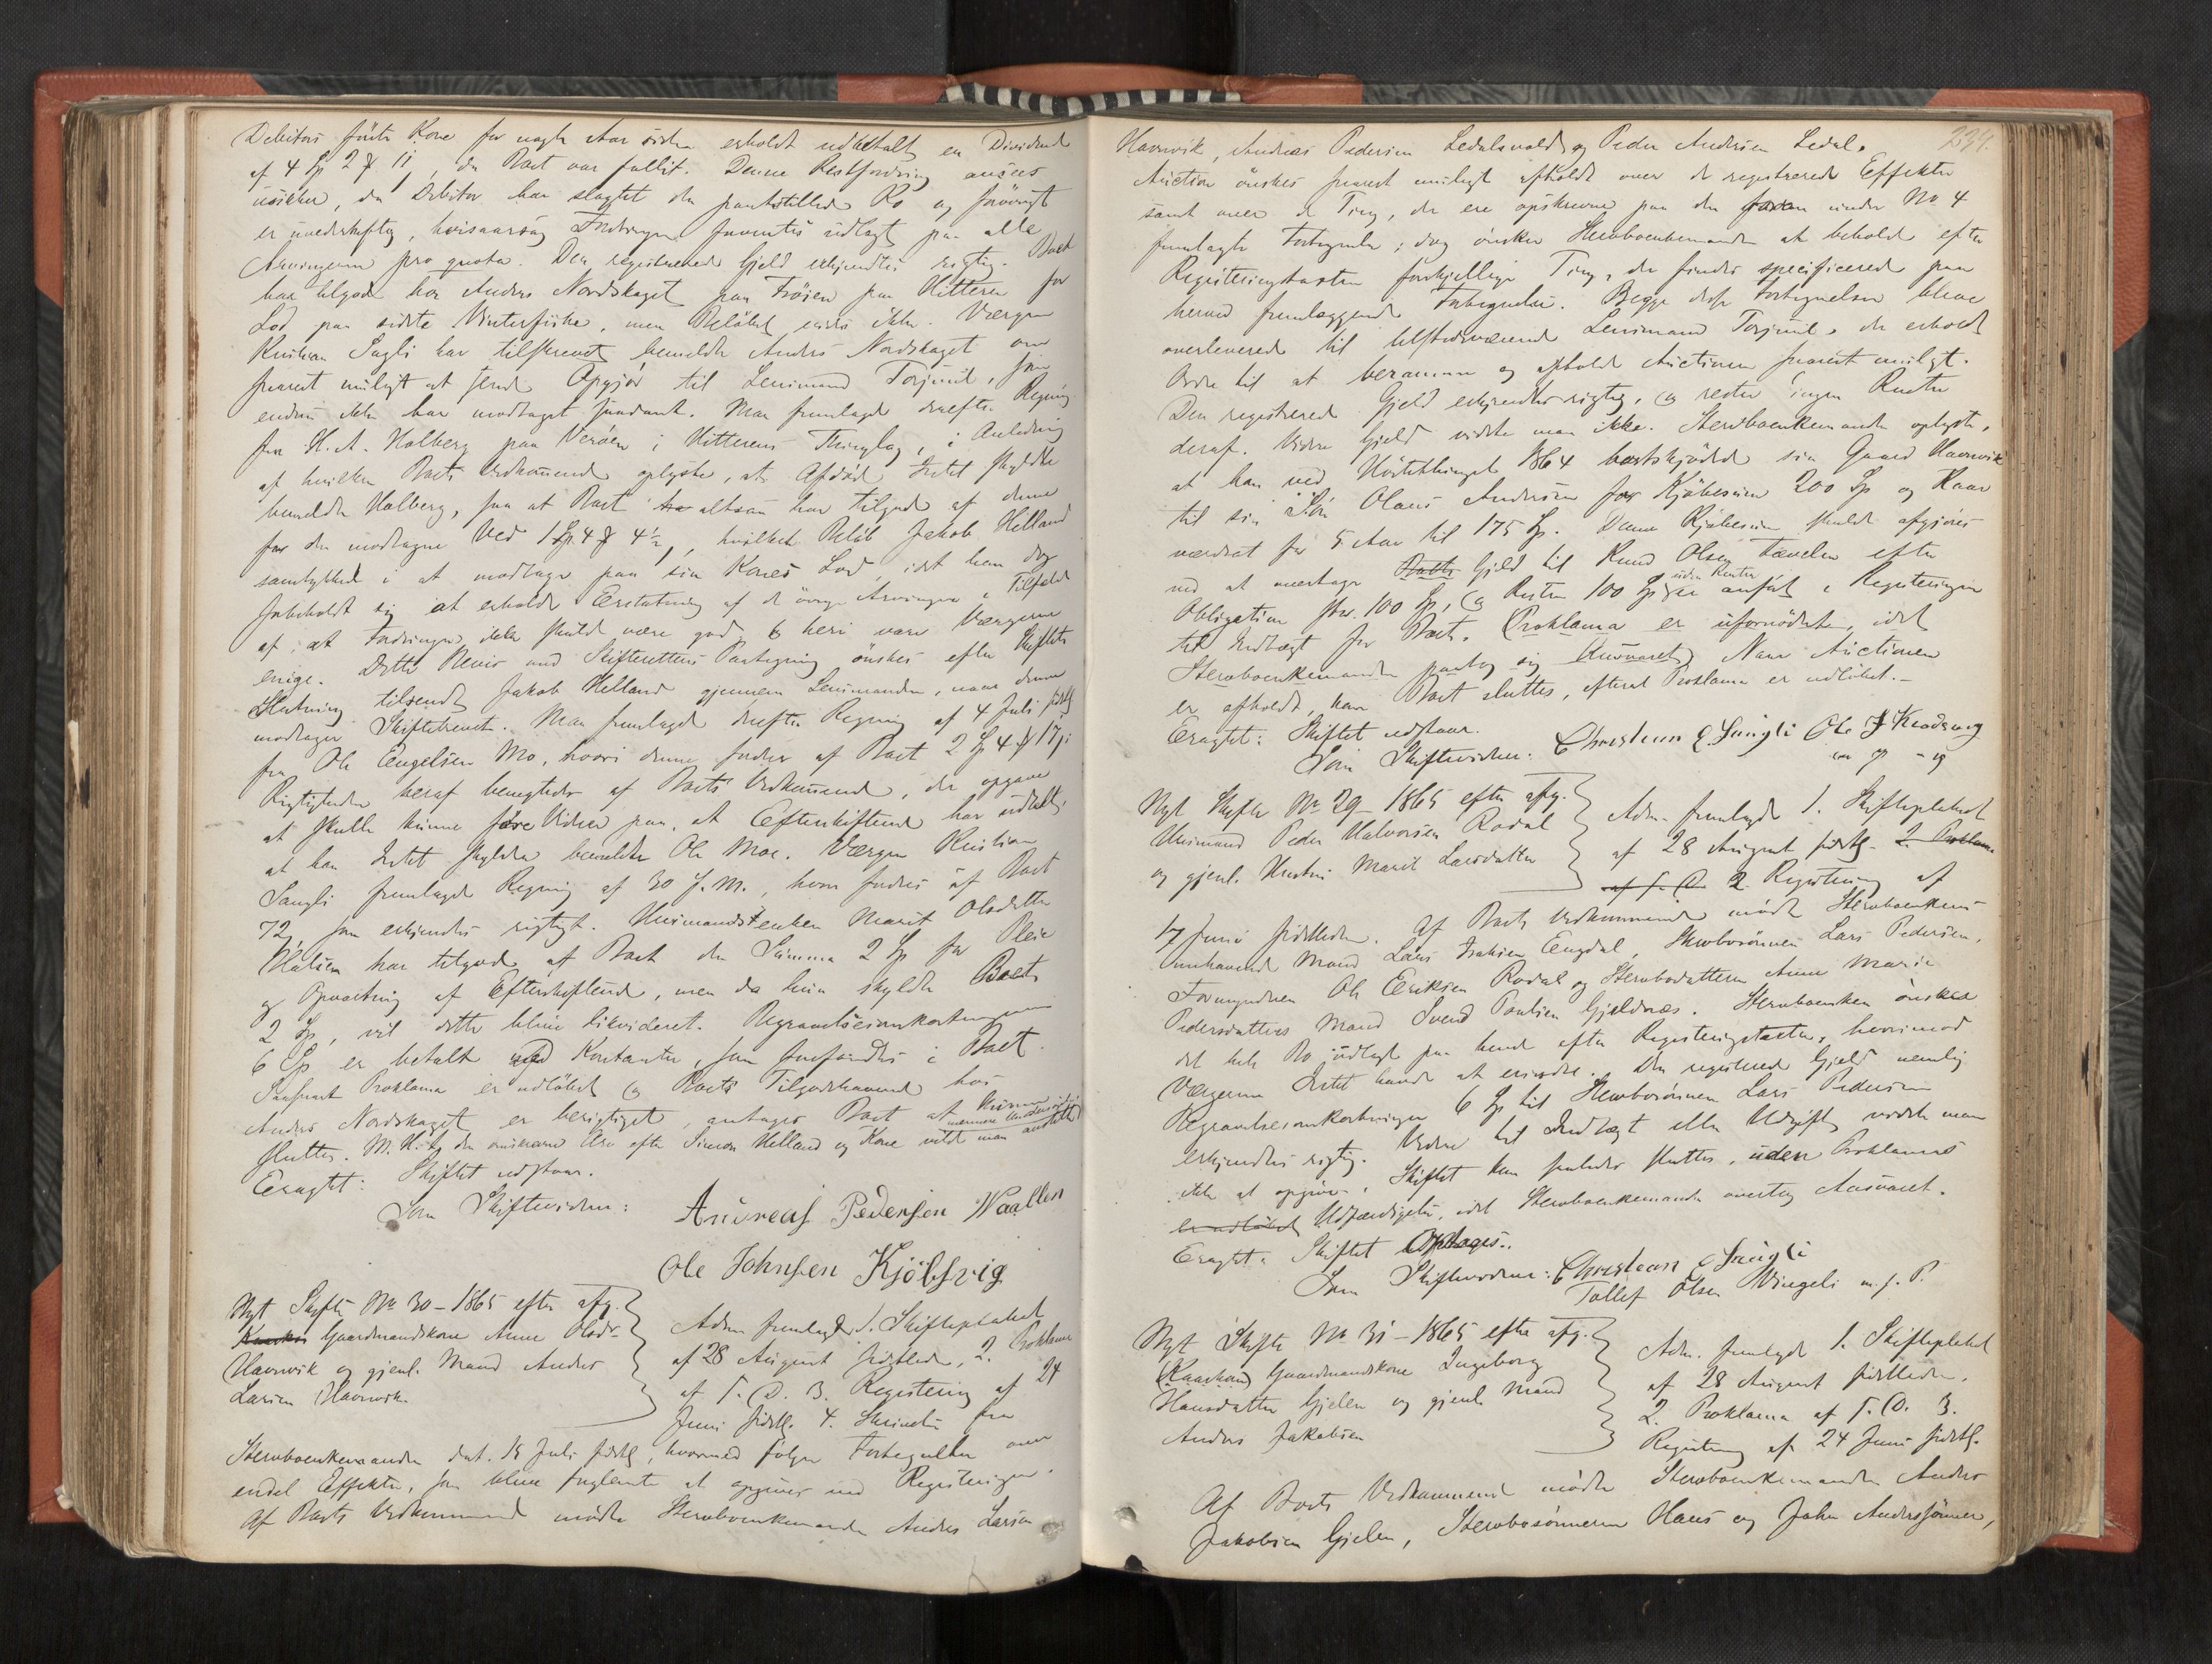 Debitors første Kone for nogle Aar siden erholdt udbetalt en Dividende
af 4 Sp 2 ₰ 11, da Boet var fallit. Denne Restfordring ansees
usikker, da Debitor har slagtet den pantstillede Ko og forøvrigt
er uvederheftig, hvisaarsag Fordringen forventes udlagt paa alle
Arvingerne pro quota. Den registrerede Gjeld erkjendtes rigtig. Boet
har tilgode hos Anders Nordskaget paa Frøien paa Hitteren for
Lod paa sidste Vinterfiske, men Beløbet vides ikke. Værgen
Kristian Sugli har tilskrevet bemeldte Anders Nordskaget om
snarest muligt at sende Opgjør til Lensmand Torjuul, som
endnu ikke har modtaget saadant. Man fremlagde derefter Regning
fra H. A. Holberg paa Verøen i Hitterens Thinglag, i Anledning
af hvilken Boets Vedkommende oplyste, at Afdøde Intet skyldte
bemeldte Holberg, saa at Boet altsaa har tilgode af denne
for den modtagne Ved 1 Sp 4 ₰ 4½, hvilket Beløb Jakob Helland
samtykkede i at modtage paa sin Kones Lod, idet han dog
forbeholdt sig at erholde Erstatning af de øvrige Arvinger i Tilfælde
af, at Fordringen ikke skulde være god, og heri vare Værgerne
enige. Dette Revir med Skifterettens Paategning ønskes efter Skiftets
Slutning tilsendt Jakob Helland gjennem Lensmanden, naar denne
modtager Skiftebrevet. Man fremlagde derefter Regning af 4 Juli sidstl
fra Ole Engelsen Mo, hvori denne fordrer af Boet 2 Sp 4 ₰ 17;
Rigtigheden heraf benegtedes af Boets Vedkommende, der opgave
at skulle kunne føre Vidner paa, at Efterskiftende har udtalt,
at han Intet skyldte bemeldte Ole Moe. Værgen Kristian
Saugli fremlagde Regning af 30 f. M., hvor fordres af Boet
72, som erkjendtes rigtigt. Huusmandsenken Marit Olsdatter
Halsen har tilgode af Boet den Summa 2 Sp for Pleie
og Opvartning af Efterskiftende, men da hun skylder Boet
2 Sp, vil dette blive likvideret. Begravelsesomkostningerne
6 Sp er betalt med Kontanter, som forefandtes i Boet.
Saasnart Proklama er udløbet og Boets Tilgodehavende hos
Anders Nordskaget er berigtiget, antages Boet at kunne
sluttes. M. H. t. den omskrevne Arv efter Simon Helland og Kone vilde man nærmere anstille
Eragtet: Skiftet udstaar.
Som Skiftevidner: Andreas Pedersen Waallen
Ole Johnsen Kjölsvig
Nyt Skifte No 30 – 1865 efter afg.
Gaardmandskone Anne Olsdr
Havnvik og gjenl. Mand Anders
Larsen Havnvik.
Adm. fremlagde 1. Skifteplakat
af 28 August sidstleden, 2. Proklama
af s. D. 3. Registering af 24
Juni sidstl. 4. Skrivelse fra
Stervboenkemanden dat. 15 Juli sidstl, hvormed følger Fortegnelse over
endel Effekter, som bleve forglemte at opgives ved Registeringen.
Af Boets Vedkommende mødte Stervboenkemanden Anders Larsen
234.
Havnvik, Andreas Pedersen Ledalsvold og Peder Andersen Ledal.
Auction ønskes snarest muligt afholdt over de registrerede Effekter
samt over de Ting, der ere opskrevne paa den foran under No 4
fremlagte Fortegnelse; dog ønsker Stervboenkemanden at beholde efter
Registeringstaxten forskjellige Ting, der findes specificerede paa
herved fremlæggende Fortegnelse. Begge disse Fortegnelser bleve
overleverede til tilstedeværende Lensmand Torjuul, der erholdt
Ordre til at beramme og afholde Auctionen snarest muligt.
Den registrerede Gjeld erkjendtes rigtig, og rester ingen Renter
deraf. Videre Gjeld vidste man ikke. Stervboenkemanden oplyste,
at han ved Høstethinget 1864 bortskjødede sin Gaard Havnvik
til sin Søn Olaus Andersen for Kjøbesum 200 Sp og Kaar
værdsat for 5 Aar til 175 Sp. Denne Kjøbesum skulde afgjøres
ved at overtage Boets Gjeld til Knud Olsen Tævelen efter
Obligation stor 100 Sp, og Resten 100 Sp uden Renter er anført i Registeringen
til Indtægt for Boet. Proklama er ufornødent, idet
Stervboenkemanden paatog sig Ansvaret. Naar Auctionen
er afholdt, kan Boet sluttes, efterat Proklama er udløbet.–
Eragtet: Skiftet udstaar.
Som Skiftevidner: Christian E Saugli Ole J Kendsvig
m p - g
Nyt Skifte No 29 – 1865 efter afg.
Huusmand Peder Halvorsen Rodal
og gjenl. Hustru Marit Larsdatter
Adm. fremlagde 1. Skifteplakat
af 28 August sidstl. 2. Proklama
af s. D. 2. Registering af
17 Juni sidstleden. Af Boets Vedkommende mødte Stervboenkens
nuhavende Mand Lars Isaksen Engdal, Stervbosønnen Lars Pedersen,
Formynderen Ole Eriksen Rodal og Stervbodatteren Anne Marie
Pedersdatters Mand Svend Paulsen Gjeldnæs. Stervboenken ønsker
det hele Bo udlagt paa hende efter Registeringstaxten, hvorimod
Værgerne Intet havde at erindre. Den registrerede Gjeld nemlig
Begravelsesomkostninger 6 Sp til Stervbosønnen Lars Pedersen
erkjendtes rigtig. Videre til Indtægt eller Udgift vidste man
ikke at opgive. Skiftet kan saaledes sluttes, uden Proklamas
er udløbet Udfærdigelse, idet Stervboenkemanden overtog Ansvaret.
Eragtet: Skiftet Optages.
Som Skiftevidner: Christian E Saugli
Tollef Olsen Vingeli m. f. P.
Nyt Skifte No 31 – 1865 efter afg.
(Kaarkone) Gaardmandskone Ingeborg
Hansdatter Gjelen og gjenl. Mand
Anders Jakobsen
Adm. fremlagde 1. Skifteplakat
af 28 August sidstleden.
2. Proklama af s. D. 3.
Registering af 24 Juni sidstl.
Af Boets Vedkommende mødte Stervboenkemanden Anders
Jakobsen Gjelen, Stervbosønnerne Hans og John Anderssønner,